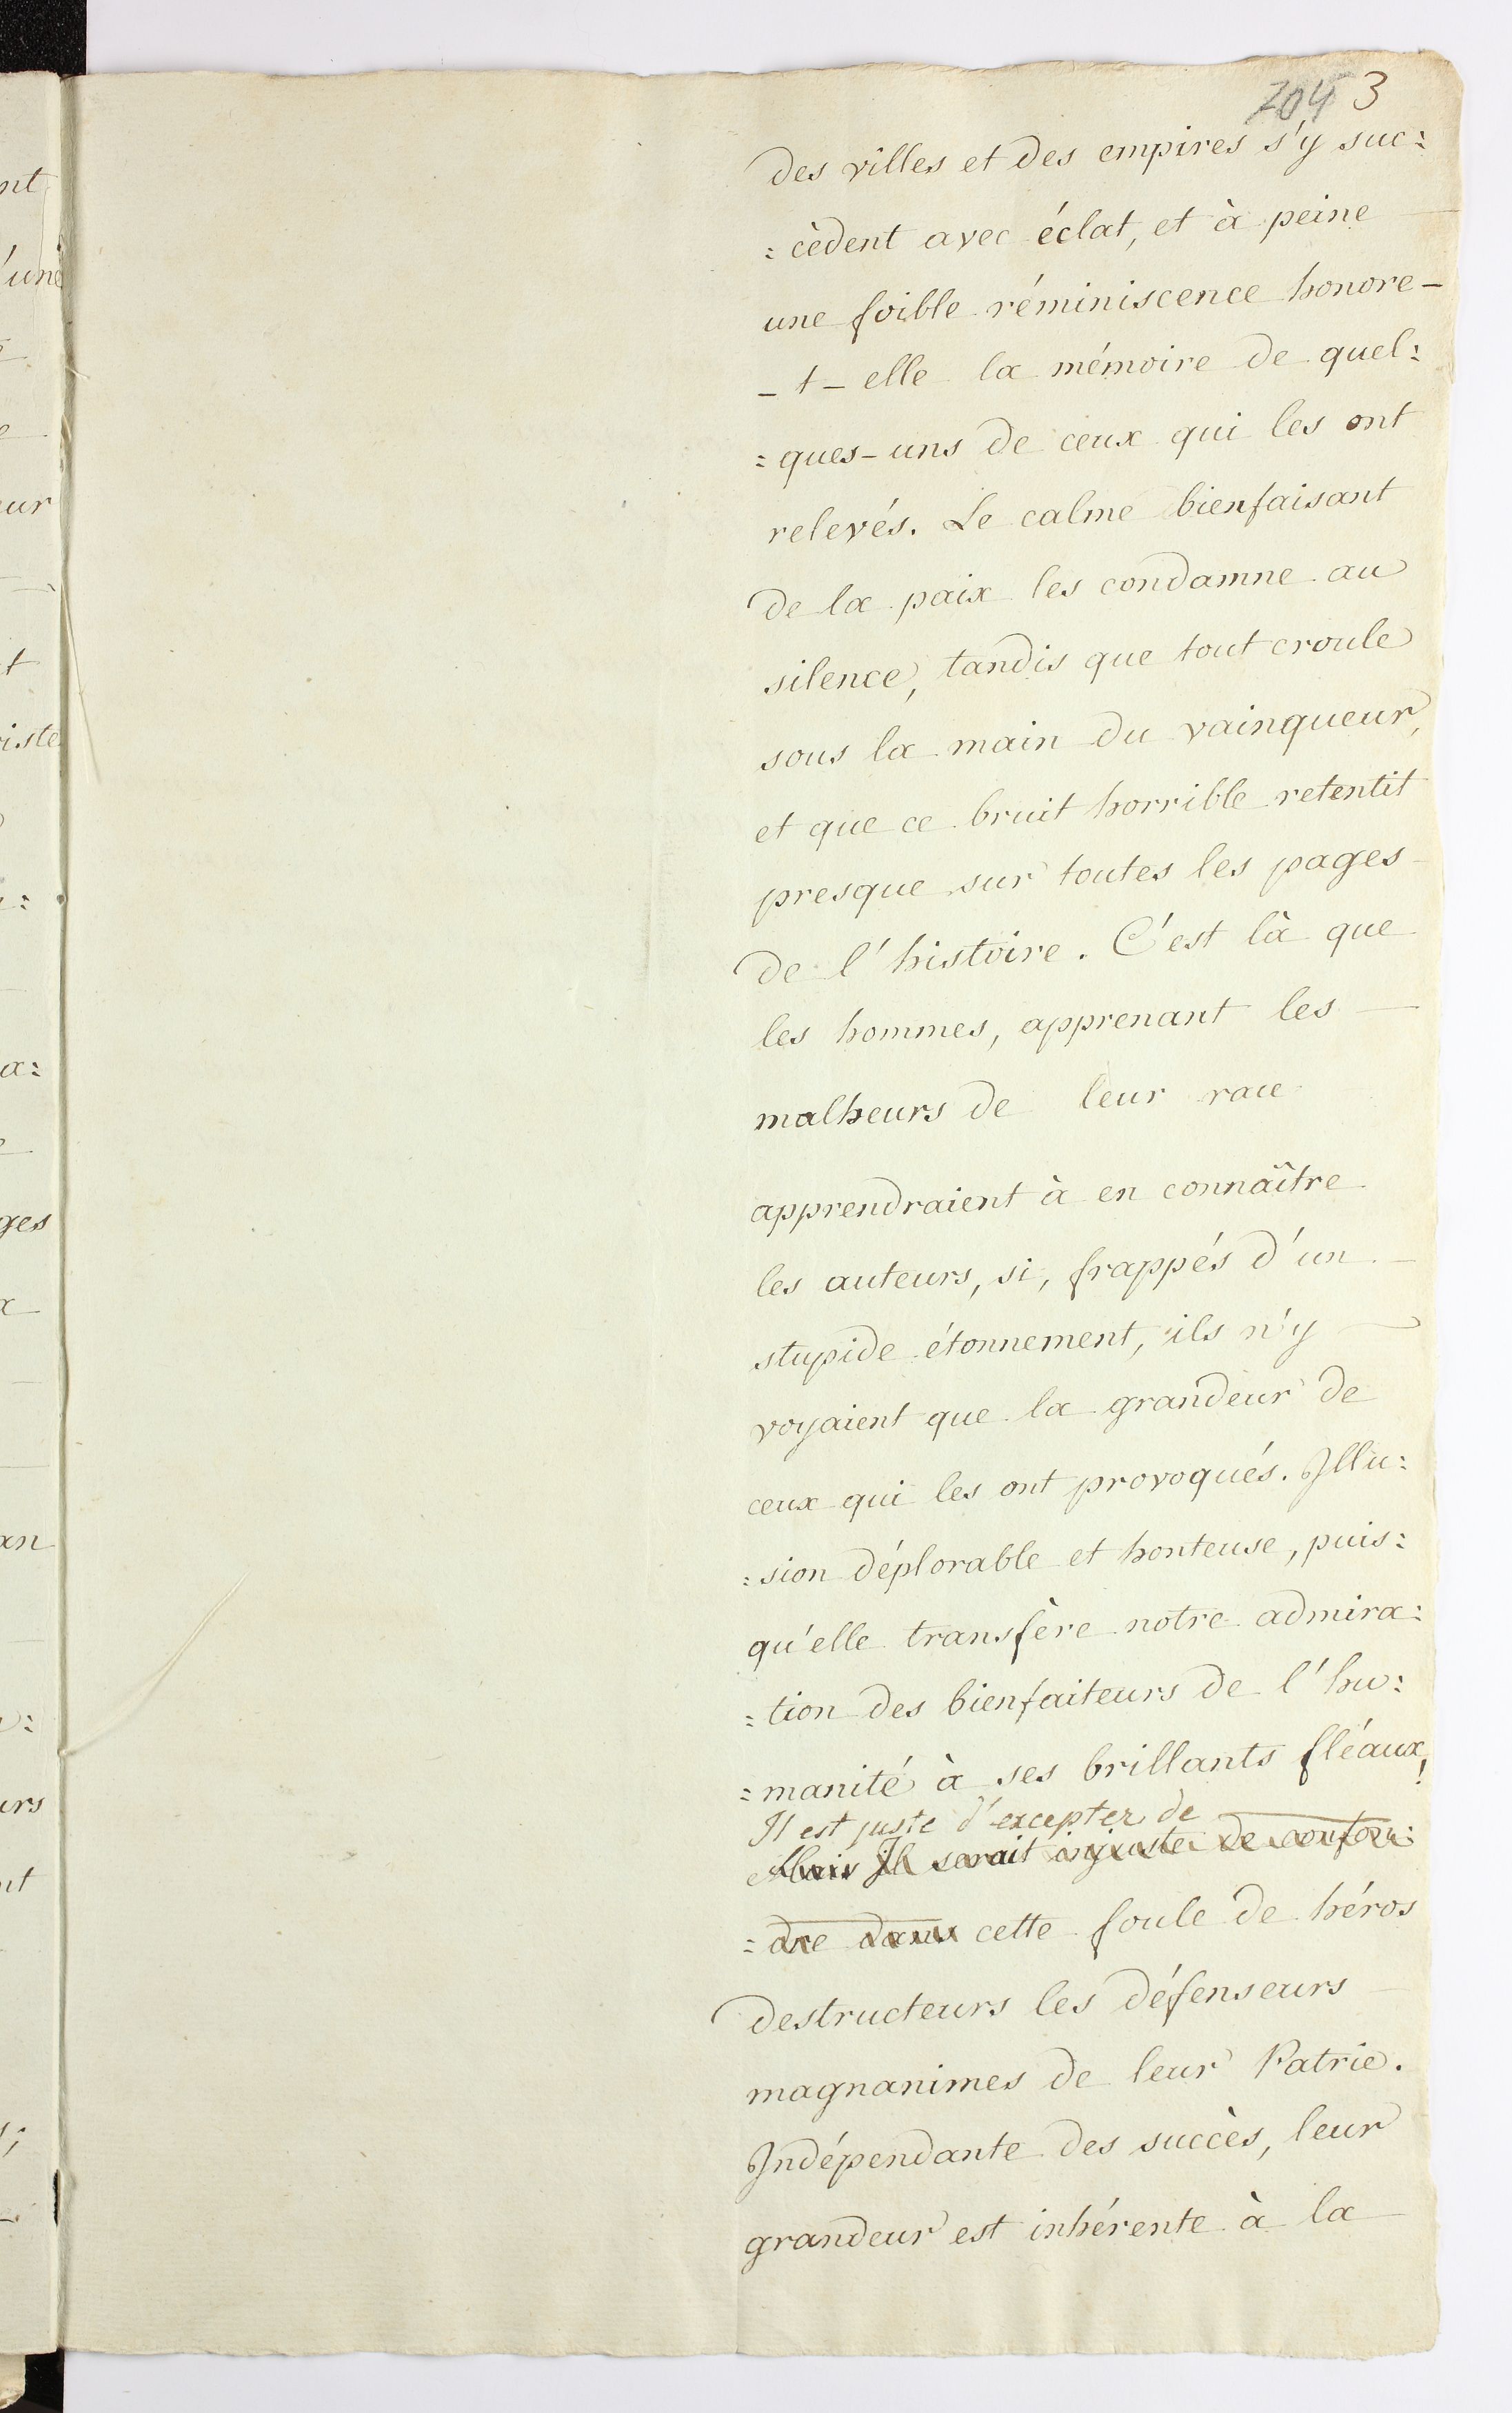 704 3
des villes et des empires s'y suc:
:cèdent avec éclat, et à peine
une foible réminiscence honore-
-t-elle la mémoire de quel:
:ques-uns de ceux qui les ont
relevés. Le calme bienfaisant
de la paix les condamne au
silence, tandis que tout croule
sous la main du vainqueur,
et que ce bruit horrible retentit
presque sur toutes les pages
de l'histoire. C'est là que
les hommes, apprenant les
malheurs de leur race
apprendraient à en connaître
les auteurs, si, frappés d'un
stupide étonnement, ils n'y
voyaient que la grandeur de
ceux qui les ont provoqués. Illu:
:sion déplorable et honteuse, puis:
qu'elle transfère notre admira:
:tion des bienfaiteurs de l'hu:
:manité à ses brillants fléaux!
Il est juste d'excepter de
Mais Il serait injuste de confon:
:dre dans cette foule de héros
destructeurs les défenseurs
magnanimes de leur Patrie.
Indépendante des succès, leur
grandeur est inhérente à la
nt
'une
eur
t
iste
a:
ges
an
urs
nt